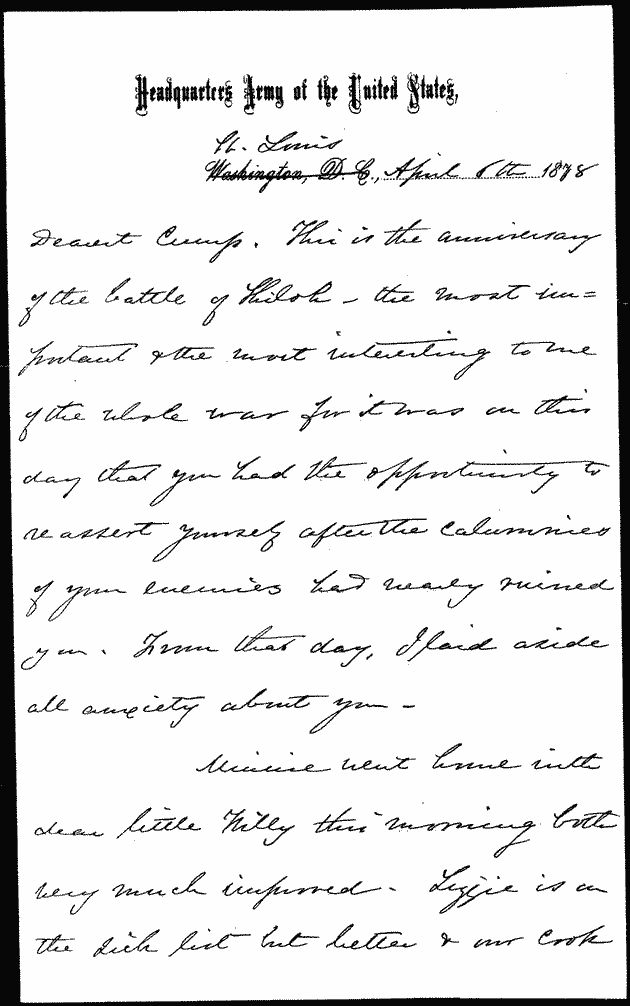 Headquarters Army of the United States,
St. Louis
Washington, D. C., April 6th 1878
Dearest Cump. This is the anniversary
of the battle of Shiloh - the most im=
portant & the most interesting to me
of the whole war for it was on this
day that you had the opportunity to
reassert yourself after the calumnies
of your enemies had nearly ruined
you. From that day, I laid aside
all anxiety about you -
Minnie went home with
dear little Willy this morning both
very much improved - Lizzie is on
the sick list but better & our cook